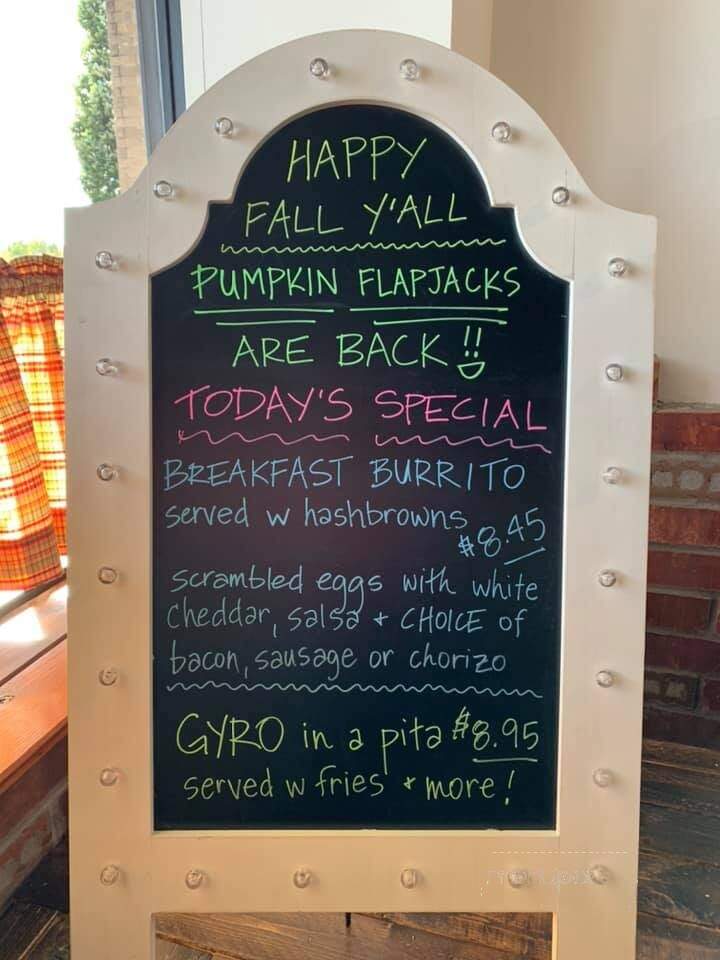 HAPPY
FALL Y'ALL
PUMPKIN FLAPJACKS
ARE BACK!!
TODAY'S SPECIAL
BREAKFAST BURRITO
served w hashbrowns
$8.45
scrambled eggs with white
cheddar, salsa + CHOICE of
bacon, sausage or chorizo
GYRO in a pita $8.95
served w fries + more!